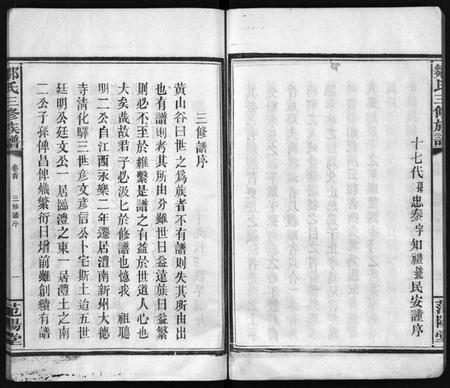 鄒氏三修族譜
范陽堂
十七代孫忠泰字知禮號民安謹序
三修譜序
黃山谷曰世之為族者不有譜則失其所由出
有譜則考其所由分雖世日益遠族日益繁
則必不至於雜繫是譜之有益於世道人心也
大矣哉故君子必汲汲於修譜也憶我 祖聰
明二公自江西永樂二年遷居澧南新州大德
寺清化驛三世彥文彥信公卜宅斯土迨五世
廷明公廷文公一居臨澧之東一居澧土之南
二公子孫俾昌俾熾繁衍日增前雖創續有譜
鄒氏三修族譜
卷首
三修譜序
一
范陽堂